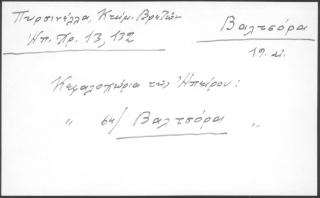 Πυρσινέλλα, Κτημ. Βρεττών
Ἠπ. Χρ. 13, 132
Βαλτσόρα
19. αἰ.
Κεφαλοχώρια τῶν Ἠπείρου:
„ 64/ Βαλτσόρα „